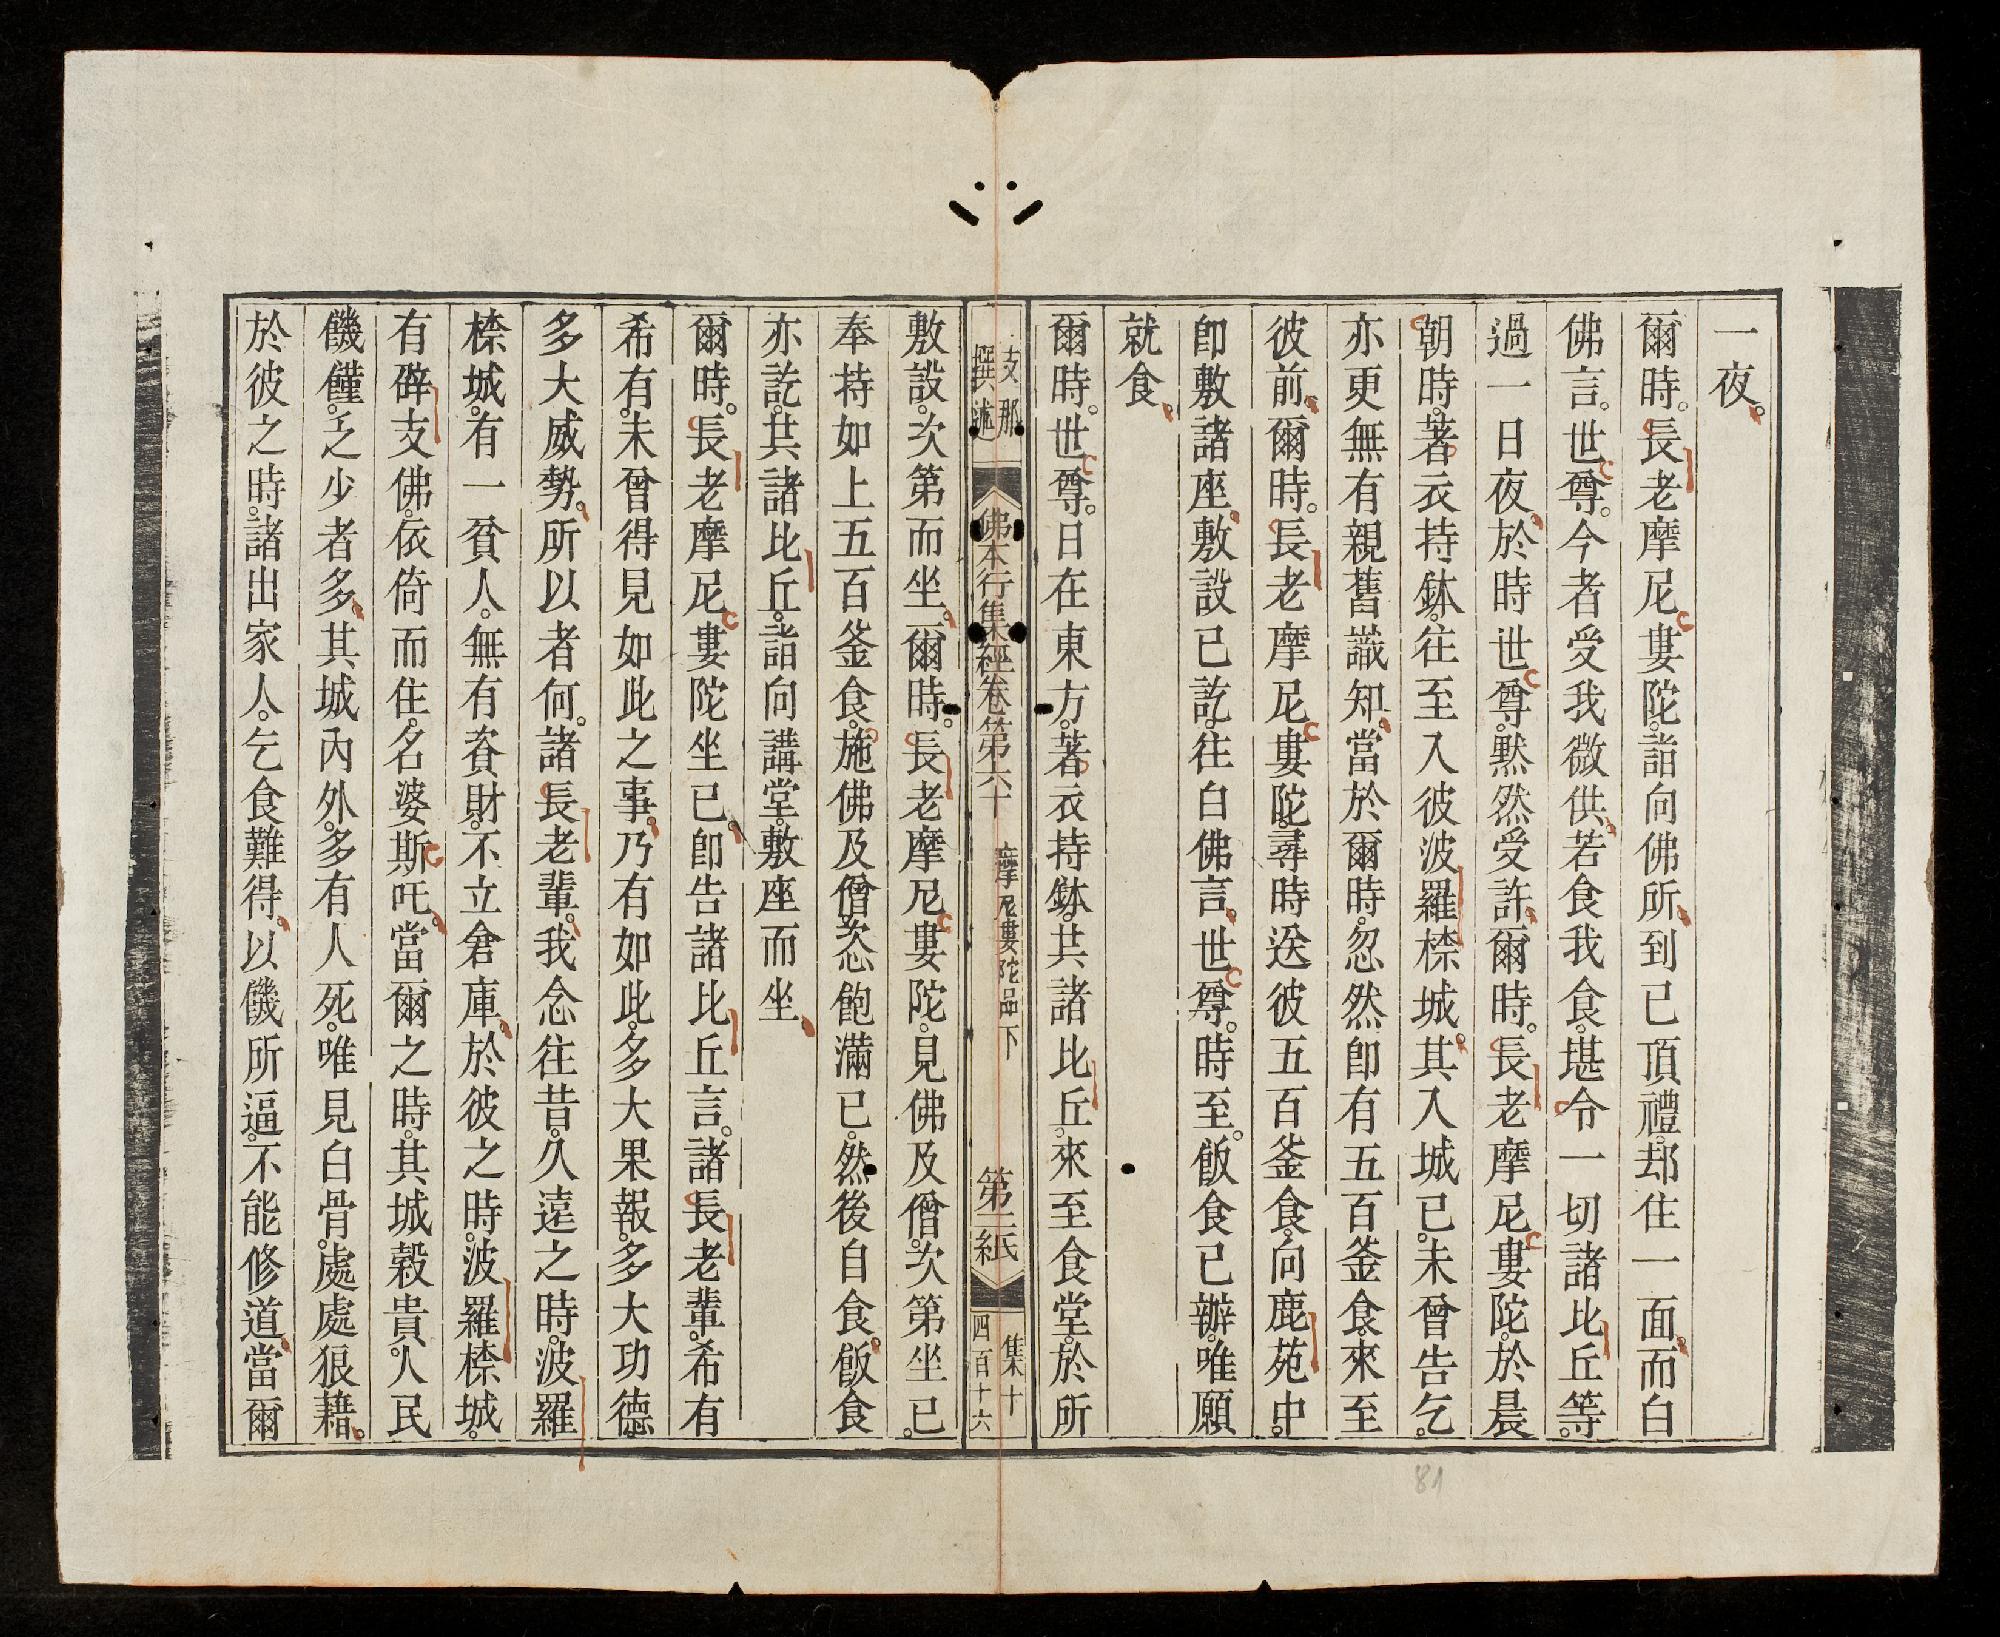 一夜。
爾時。長老摩尼婁陀。詣向佛所。到已頂禮。却住一面。而白
佛言。世尊。今者受我微供。若食我食。堪令一切諸比丘等。
過一日夜。於時世尊。默然受許。爾時。長老摩尼婁陀。於晨
朝時。著衣持鉢。往至入彼波羅㮈城。其入城已。未曾告乞。
亦更無有親舊識知。當於爾時。忽然卽有五百釜食。來至
彼前。爾時。長老摩尼婁陀。尋時送彼五百釜食。向鹿苑中。
卽敷諸座。敷設已訖。往白佛言。世尊。時至。飯食已辦。唯願
就食。
爾時。世尊。日在東方。著衣持鉢。共諸比丘。來至食堂。於所
支那
撰述
佛本行集經卷第六十
摩尼婁陀品下
第三紙
集十
四百十六
敷設。次第而坐。爾時。長老摩尼婁陀。見佛及僧。次第坐已。
奉持如上五百釜食。施佛及僧。恣飽滿已。然後自食。飯食
亦訖。共諸比丘。詣向講堂。敷座而坐。
爾時。長老摩尼婁陀坐已。卽告諸比丘言。諸長老輩。希有
希有。未曾得見如此之事。乃有如此。多大果報。多大功德。
多大威勢。所以者何。諸長老輩。我念往昔。久遠之時。波羅
㮈城。有一貧人。無有資財。不立倉庫。於彼之時。波羅㮈城。
有辟支佛。依倚而住。名婆斯吒。當爾之時。其城穀貴。人民
饑饉。乏少者多。其城內外。多有人死。唯見白骨。處處狼藉。
於彼之時。諸出家人。乞食難得。以饑所逼。不能修道。當爾
81